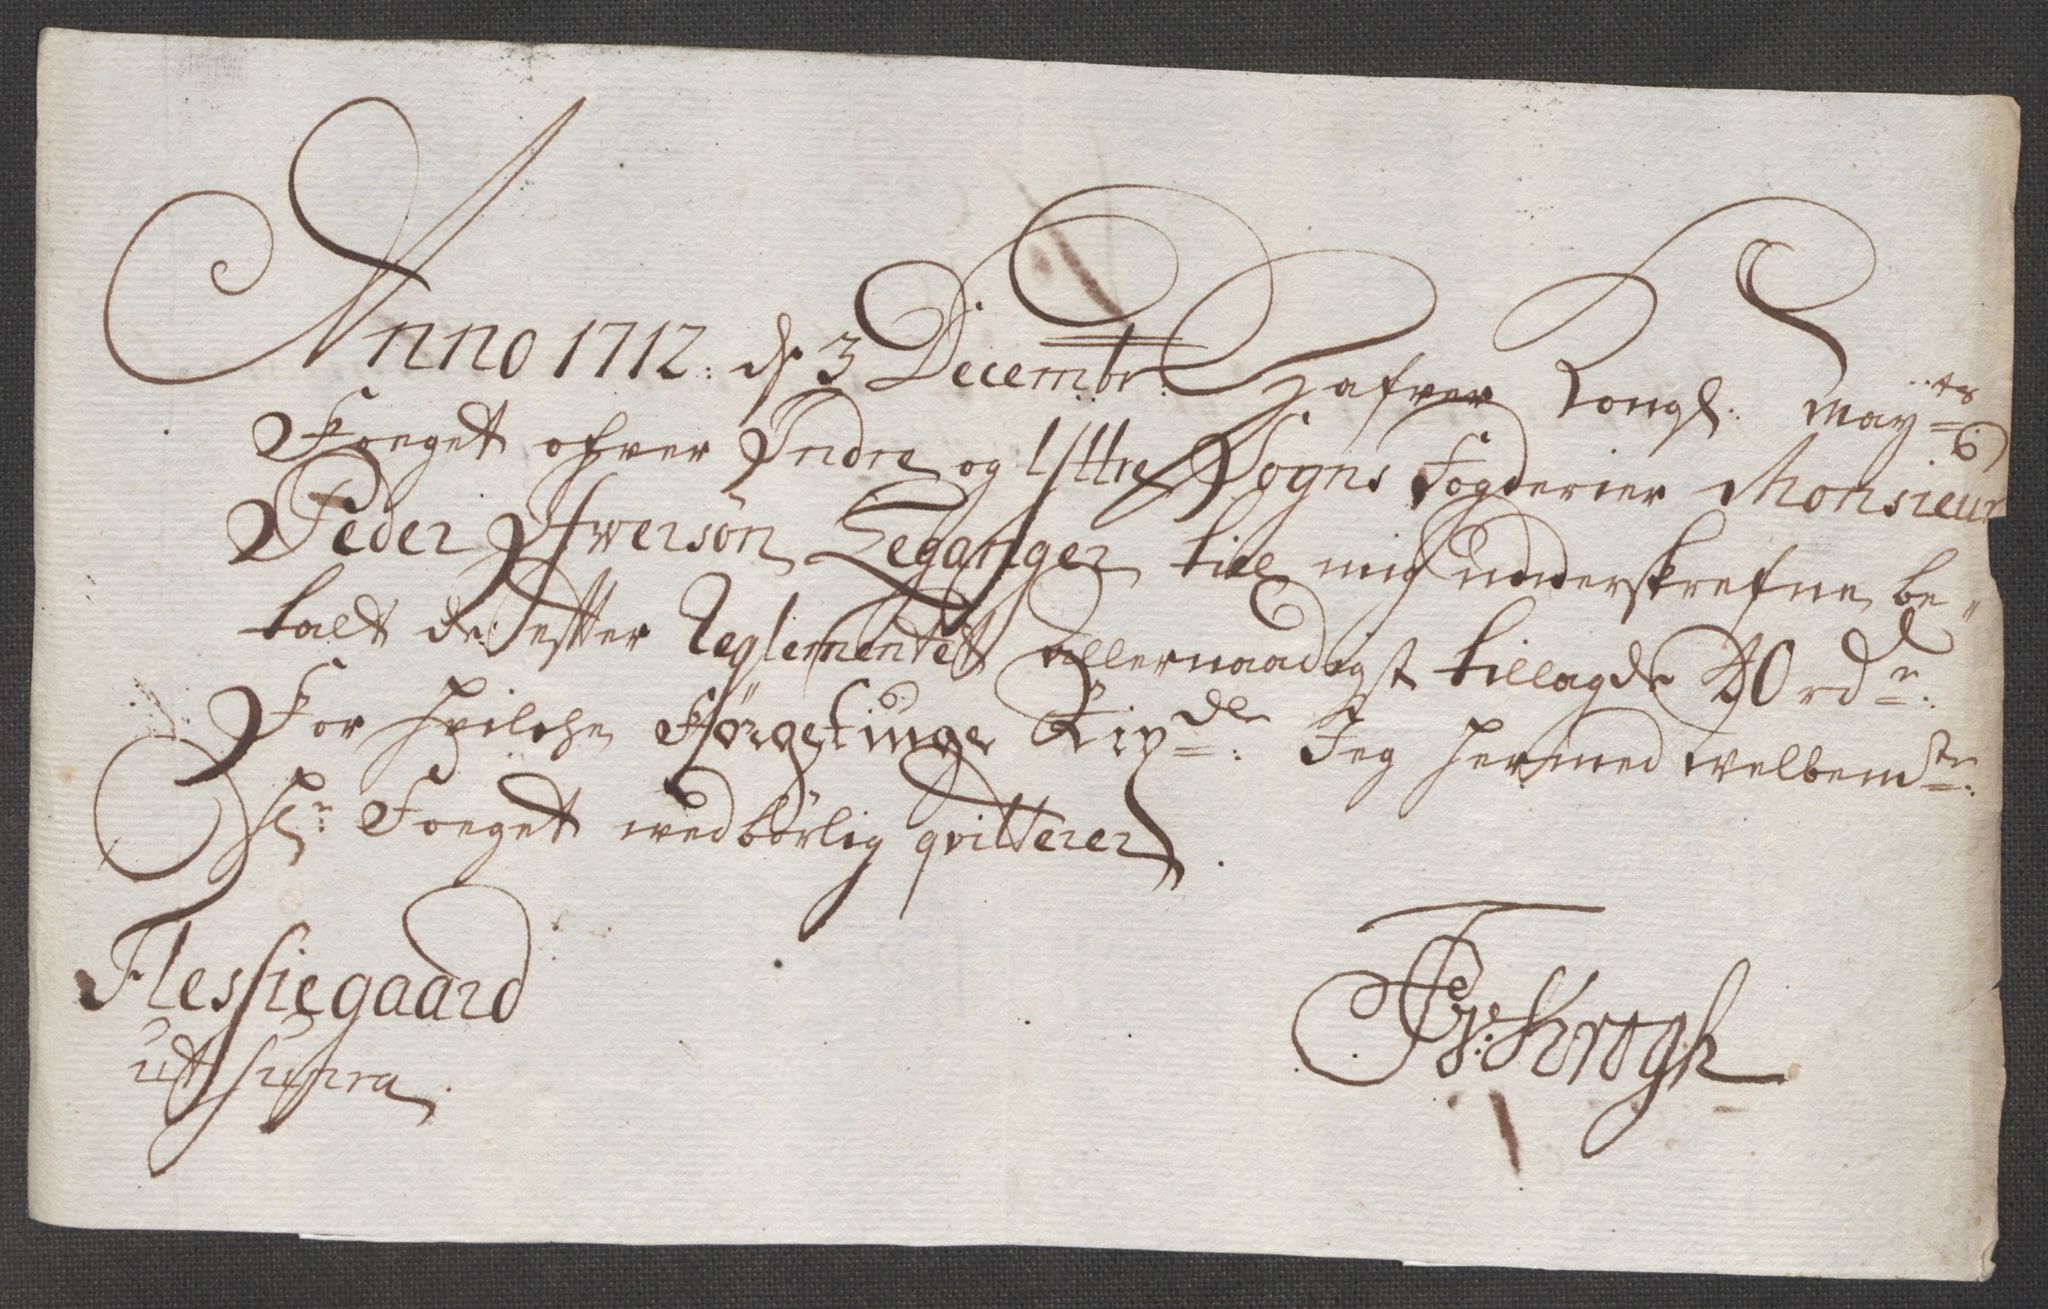 Anno 1712: d: 3 Decembr: Hafver Kongl: Mayts:
Foeget ofver Indre og Ytre Sogns Fogderier Monsieur
Peder Iwersøn Leganger till mig underskrefne, be„
talt de efter Reglementet allernaadigst tillagde 20 rdr:
For hvilche Rixdlr: Jeg hermed welbemte:
Hr: Foeget wedbørlig qvitterer.
Flessiegaard
ut supra
Krogh